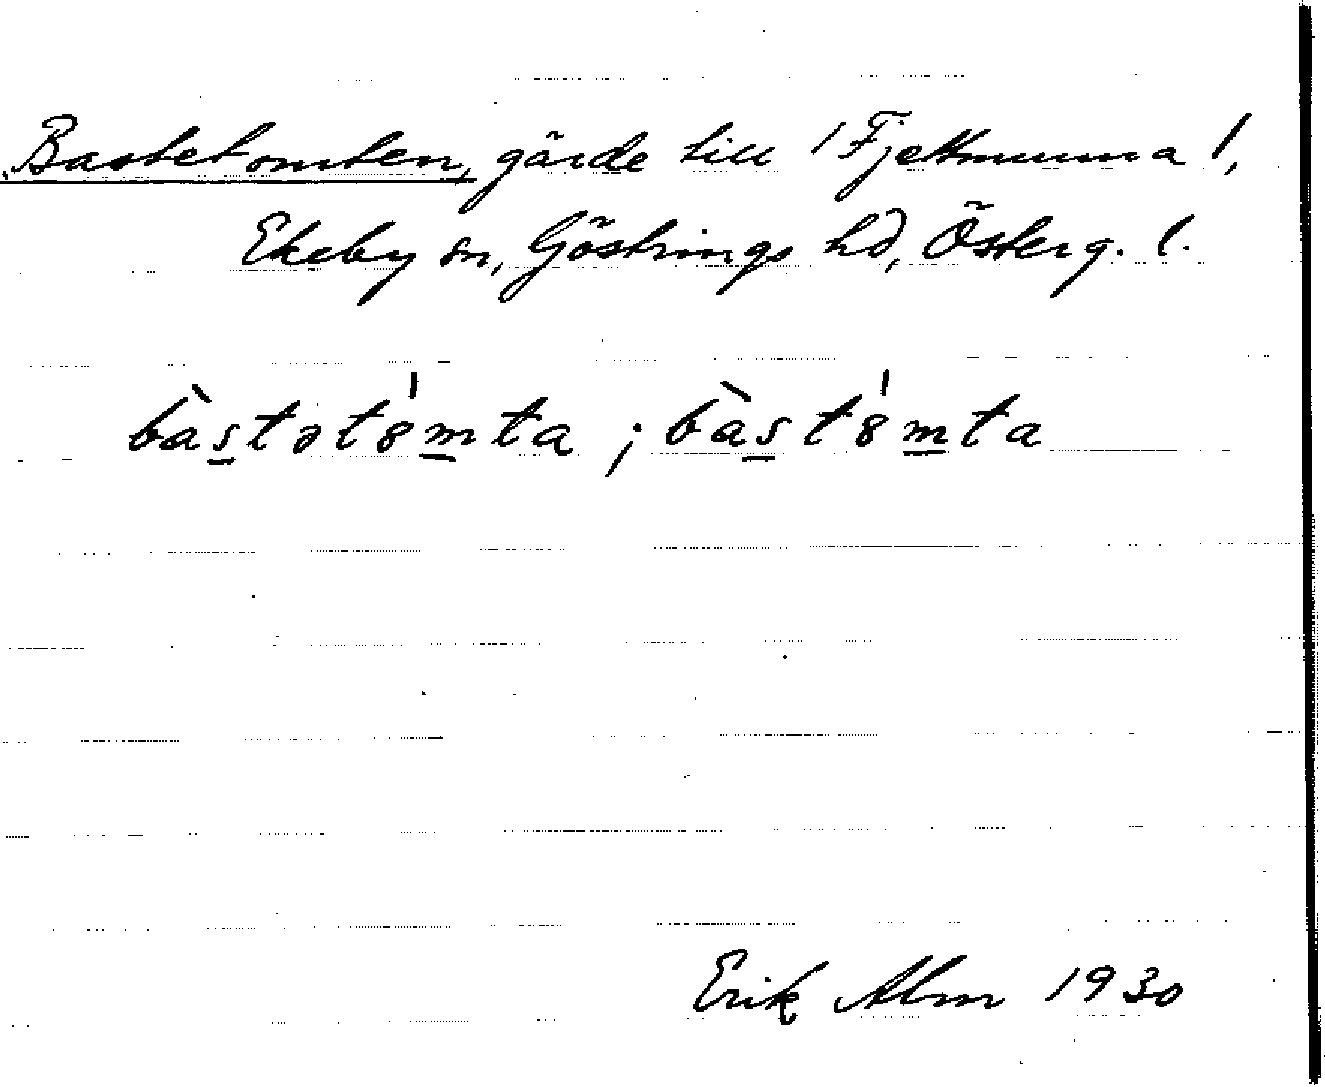 Bastetomten, gärde till 1 Fjettmunna 1,
Ekeby sn, Göstrings hd, Österg. l.
bàs̲tətˈ8m̲ta ; bàs̲tˈ8m̲ta
Erik Alm 1930